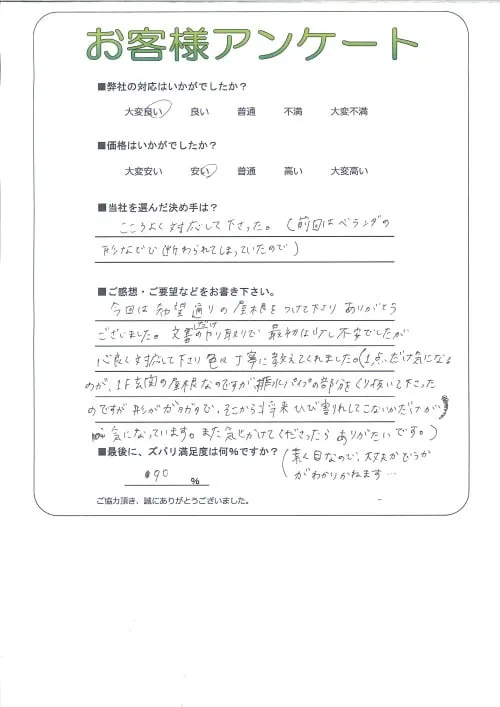 お客様アンケート
■弊社の対応はいかがでしたか？
大変良い 良い 普通 不満 大変不満
■価格はいかがでしたか？
大変安い 安い 普通 高い 大変高い
■当社を選んだ決め手は？
こころよく対応して下さった。(前回はベランダの
形などで断わられてしまっていたので)
■ご感想・ご要望などをお書き下さい。
今回は希望通りの屋根をつけて下さり ありがとう
ございました。文書だけのやり取りで最初は少し不安でしたが
心良く対応して下さり 色々丁寧に教えてくれました。(1点だけ気になる
のが、1F玄関の屋根なのですが、排水パイプの部分をくり抜いて下さった
のですが形がガタガタで、そこから将来ひび割れしてこないかだけが
気になっています。また気にかけてくださったら ありがたいです。)
■最後に、ズバリ満足度は何%ですか？
(素人目なので、大丈夫かどうか
がわかりかねます…
90 %
ご協力頂き、誠にありがとうございました。